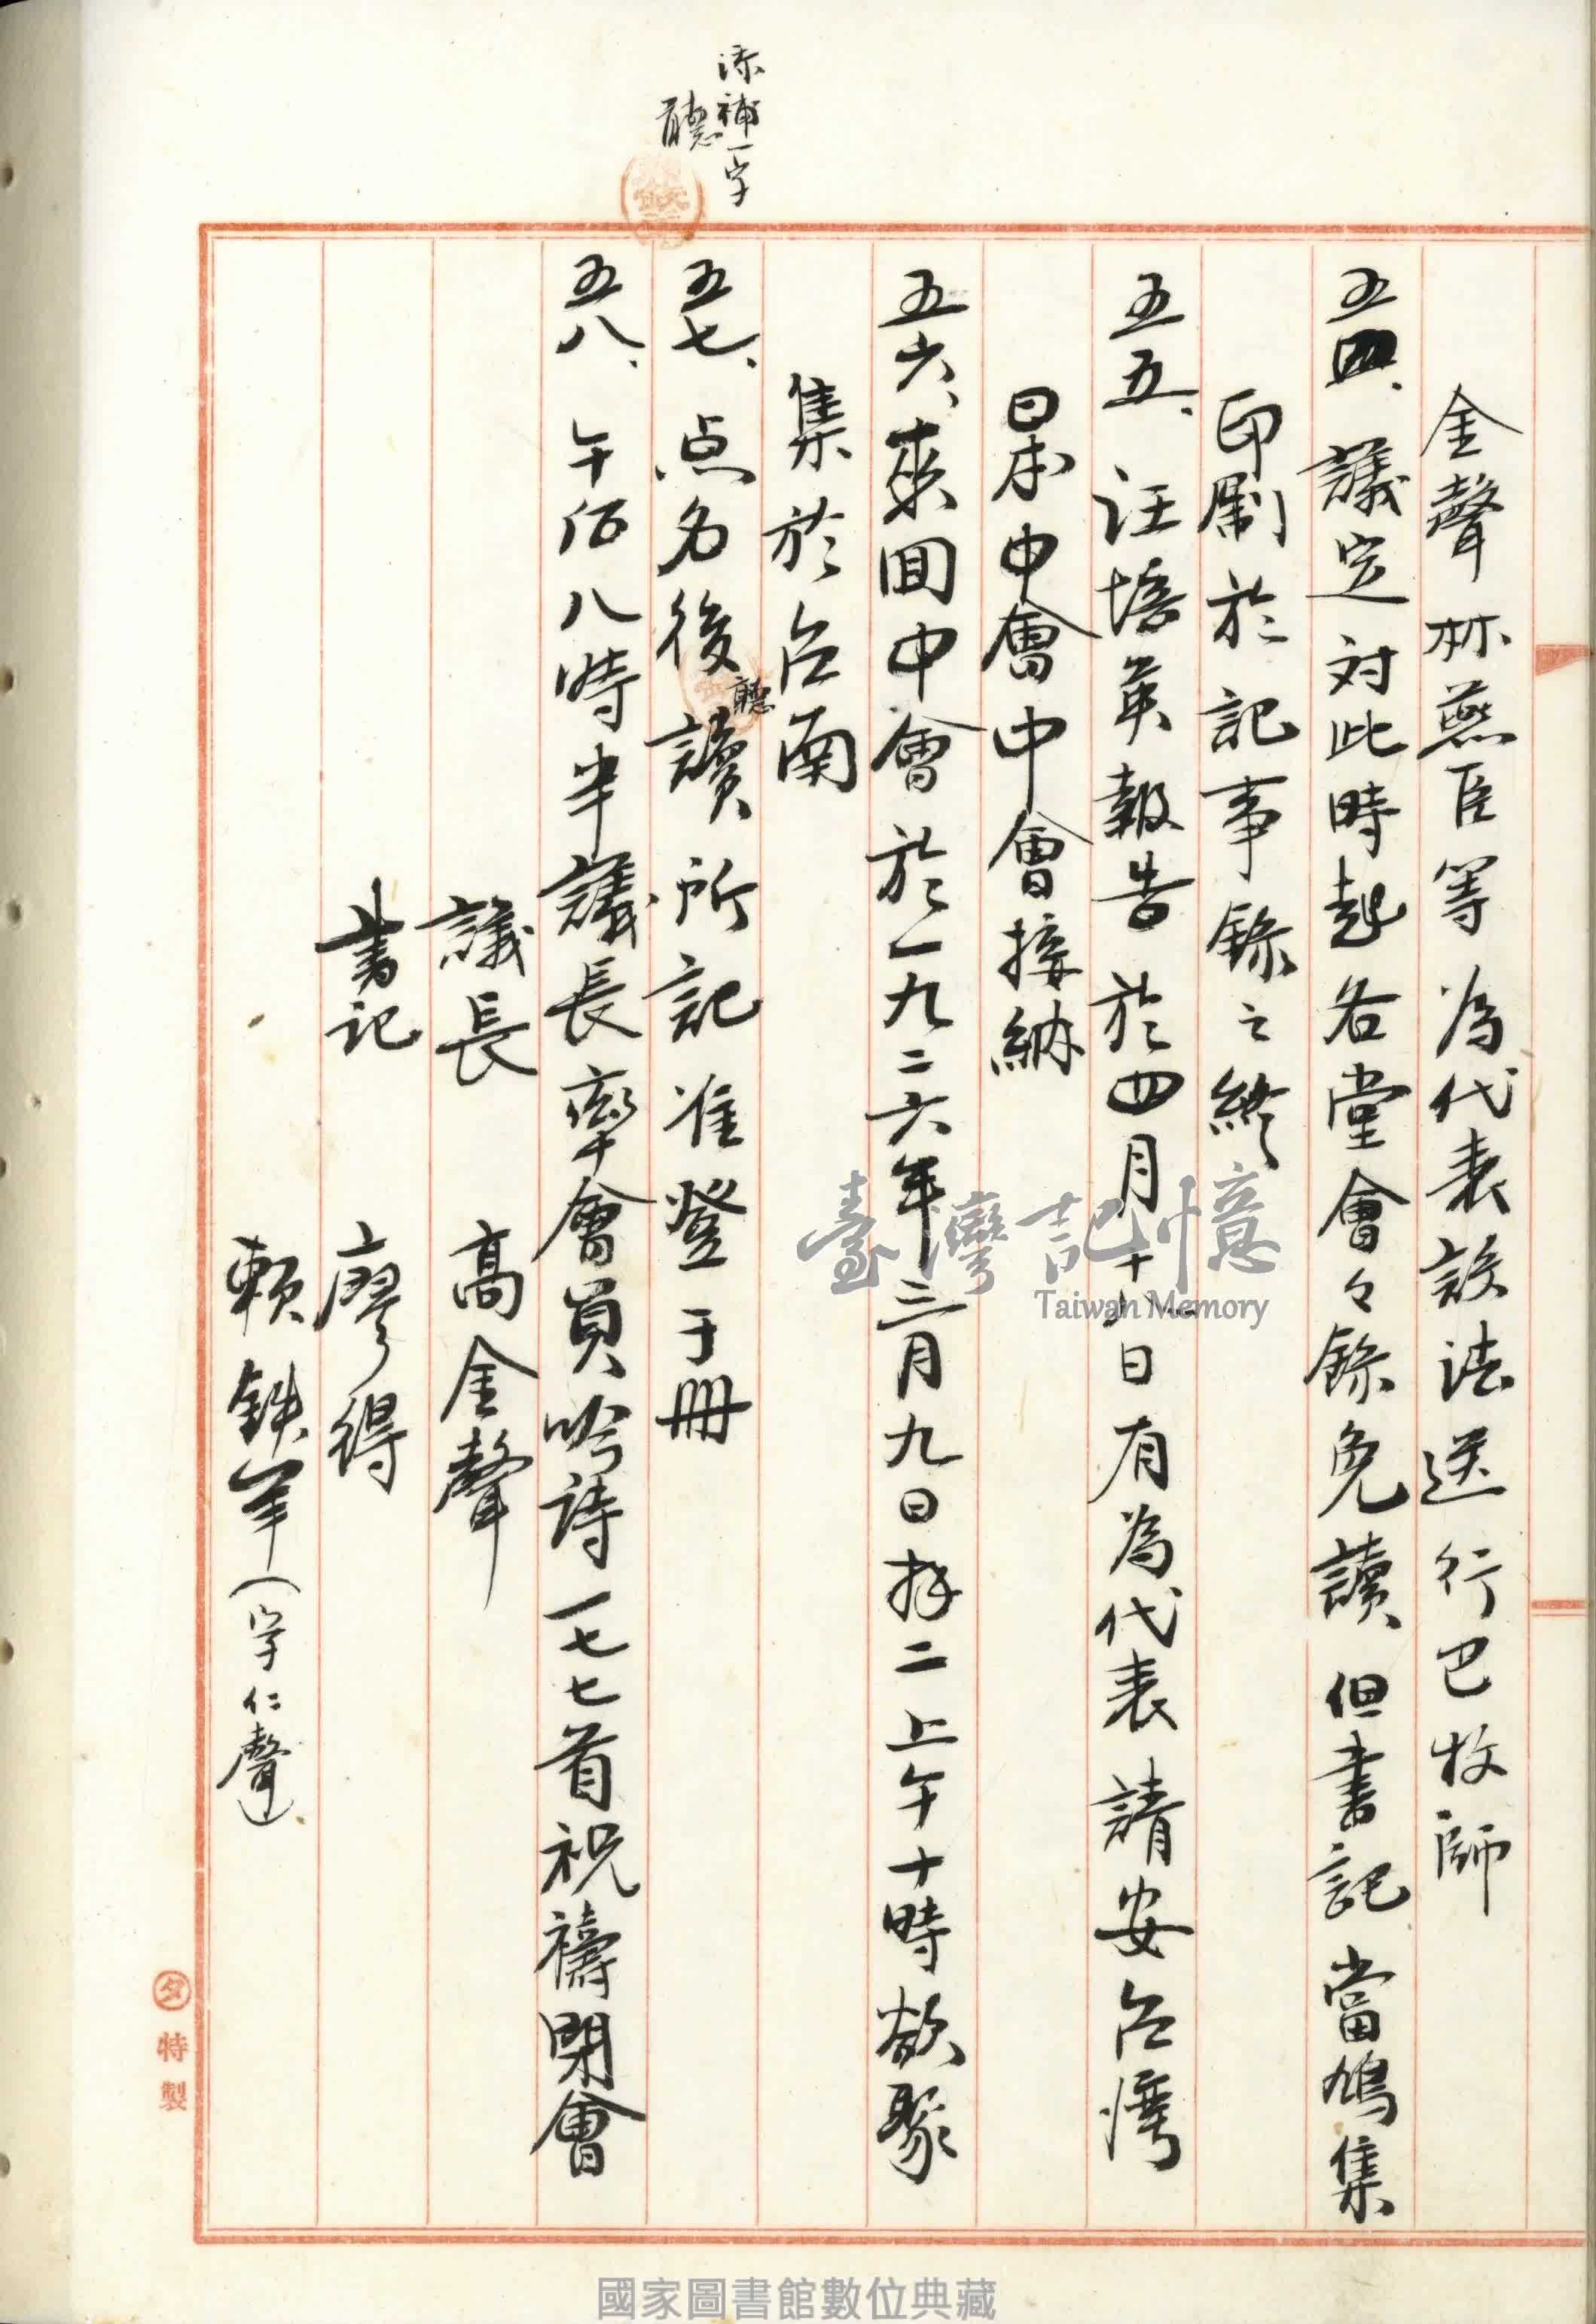 添補一字
聽
金聲林燕臣等為代表設法送行巴牧師
五四、議定対此時起各堂會々錄免讀但書記當鳩集
印刷於記事錄之終
五五、汪培英報告於四月十八日有為代表請安台灣
日本中會中會接納
五六、來囬中會於一九二六年三月九日拜二上午十時欲聚
集於台南
五七、点名後聽讀所記准登于冊
五八、午后八時半議長率會員吟詩一七七首祝禱閉會
議長 高金聲
書記 廖得
賴鉄羊(字仁聲)
夕特製
臺灣記憶
Taiwan Memory
國家圖書館數位典藏